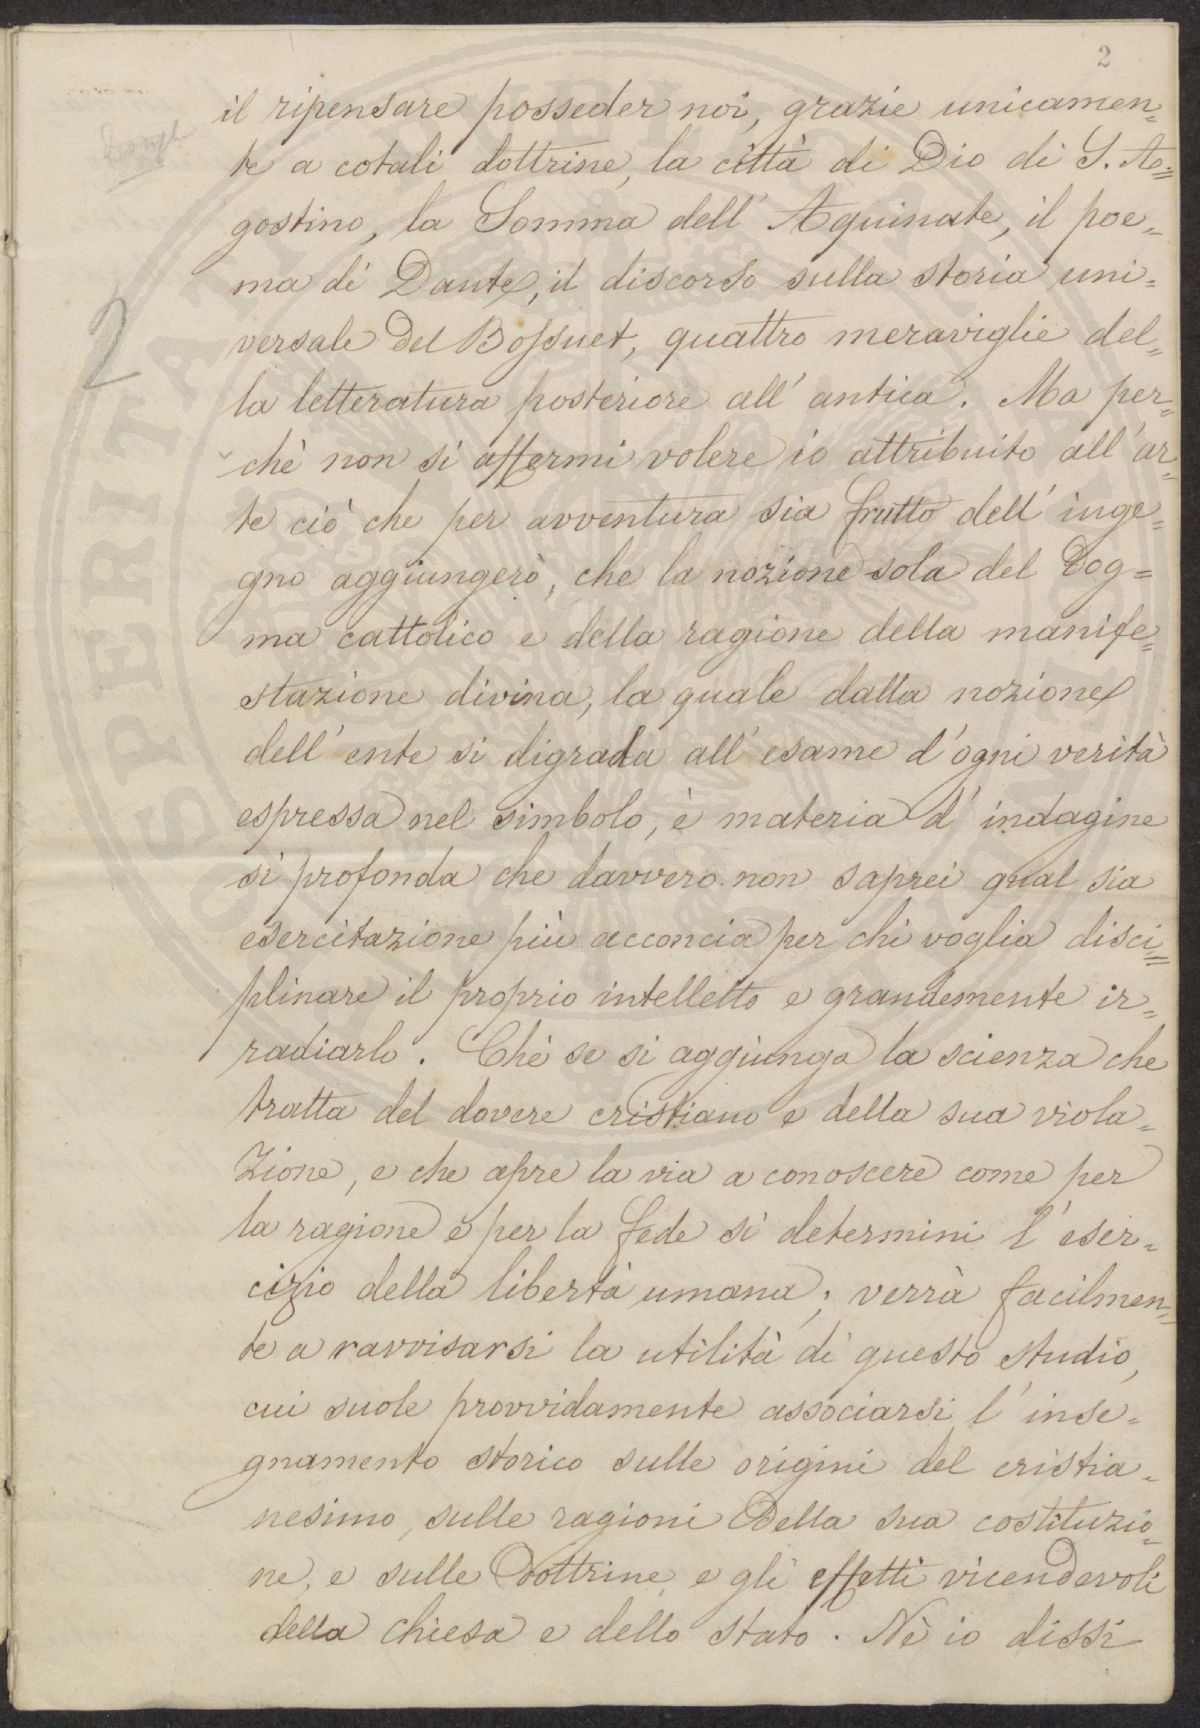 2
il ripensare posseder noi, grazie unicamen=
te a cotali dottrine, la città di Dio di S. Ao=
gostino, la Somma dell' Aquinate, il poe=
ma di Dante, il discorso sulla storia uni=
versale del Bossuet, quattro meraviglie del=
2
la letteratura posteriore all' antica. Ma per=
chè non si affermi volere io attribuito all' ar=
te ciò che per avventura sia frutto dell' inge=
gno aggiungerò, che la nozione sola del Dog=
ma cattolico e della ragione della manife=
stazione divina, la quale dalla nozione
dell' ente si digrada all' esame d' ogni verità
espressa nel simbolo, è materia d' indagine
sì profonda che davvero non saprei qual sia
esercitazione più acconcia per chi voglia disci=
plinare il proprio intelletto e grandemente ir=
radiarlo. Chè se si aggiunga la scienza che
tratta del dovere cristiano e della sua viola=
zione, e che apre la via a conoscere come per
la ragione e per la fede si determini l' eser=
cizio della libertà umana; verrà facilmen=
te a ravvisarsi la utilità di questo studio,
cui suole provvidamente associarsi l' inse=
gnamento storico sulle origini del cristia=
nesimo, sulle ragioni della sua costituzio=
ne, e sulle Dottrine e gli effetti vicendevoli
della chiesa e dello stato. Nè io dissi